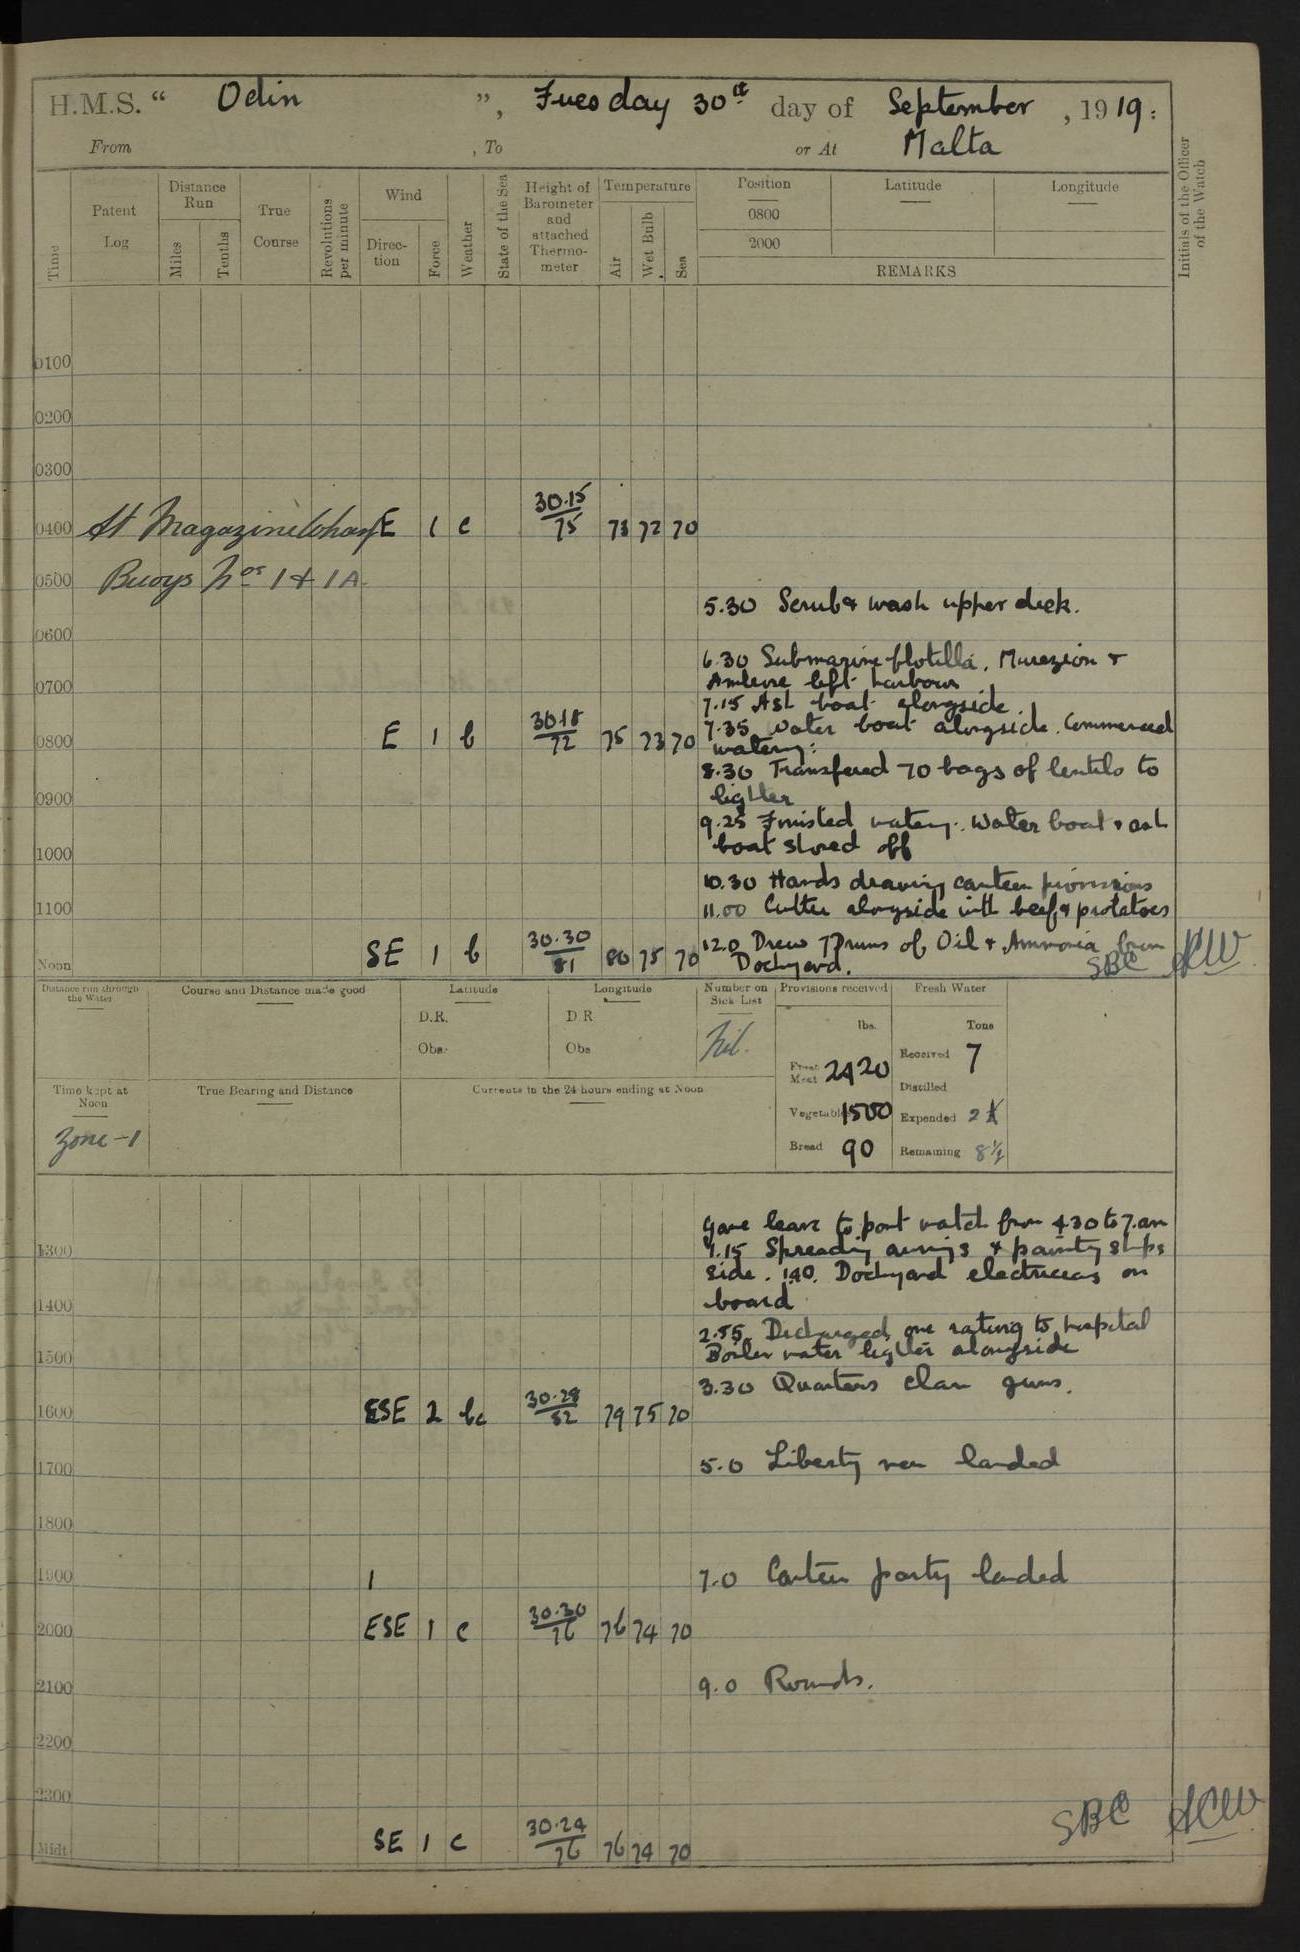 H.M.S. “ Odin ”, Tuesday 30th day of September, 1919.
From , To or At Malta
Time
Patent Log
Distance Run
Miles
Tenths
True Course
Revolutions per minute
Wind
Direc-tion
Force
Weather
State of the Sea
Height of Barometer and attached Thermo-meter
Temperature
Air
Wet Bulb
Sea
Position
Latitude
Longitude
0800
2000
REMARKS
Initials of the Officer of the Watch
0100
0200
0300
0400 At Magazine Wharf E 1 c 30.15/75 73 72 70
0500 Buoys Nos 1 & 1A
5.30 Scrub & wash upper deck.
0600
6.30 Submarine flotilla, Marazion &
Ambrose left harbour
0700
7.15 Ash boat alongside
7.35 Water boat alongside. Commenced
0800 E 1 b 30.18/72 75 73 70
watering:
8.30 Transfered 70 bags of lentils to
lighter
0900
9.25 Finished watery. Water boat & ash
boat shoved off
1000
10.30 Hands drawing canteen provisions
1100
11.00 Cutter alongside with beef & protatoes
12.0 Drew 7 Drums of Oil & Ammonia from
Noon SE 1 b 30.30/81 80 75 70
Dockyard. SBC
Distance run through the Water
Course and Distance made good
Latitude
D.R.
Obs.
Longitude
D R
Obs
Number on Sick List
Nil.
Provisions received
lbs.
Fresh Meat 2420
Vegetables 1500
Bread 90
Fresh Water
Tons
Received 7
Distilled
Expended 2½
Remaining 8½
Time kept at Noon
Zone -1
True Bearing and Distance
Currents in the 24 hours ending at Noon
Gave leave to port watch from 4.30 to 7.am
1300
1.15 Spreading awnings & painty ships
side. 1.40. Dockyard electricians on
1400
board
2.55. Discharged one rating to hospital
Boiler water lighter alongside
1500
3.30 Quarters clean guns.
1600 ESE 2 bc 30.28/82 79 75 70
1700
5.0 Liberty men landed
1800
1900
7.0 Canteen party landed
2000 ESE 1 c 30.30/76 76 74 70
2100
9.0 Rounds.
2200
2300
SBC
Midt. SE 1 c 30.24/76 76 74 70